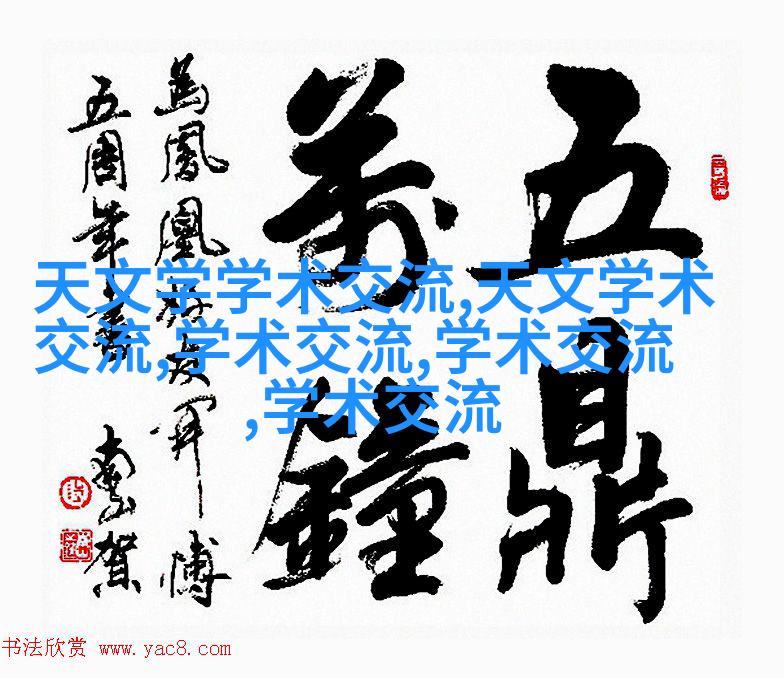 五鼎
萬鐘
為鳳凰友博
五周年
賀
天文学学术交流,天文学术
交流,学术交流,学术交流
,学术交流
书法欣赏 www.yac8.com